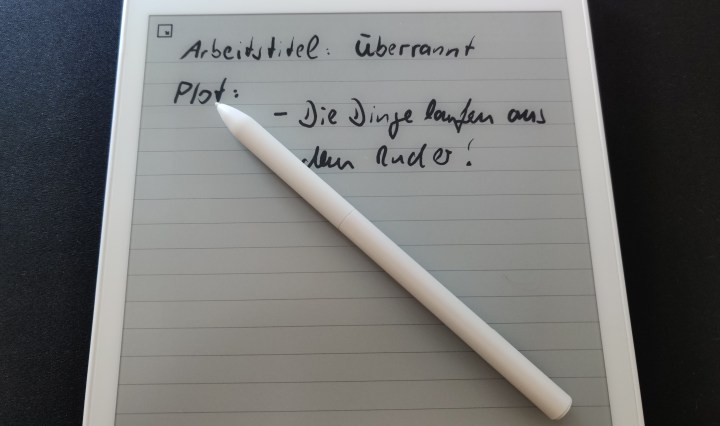 Arbeitstitel: Überrannt
Plot:
- Die Dinge laufen aus
dem Ruder!